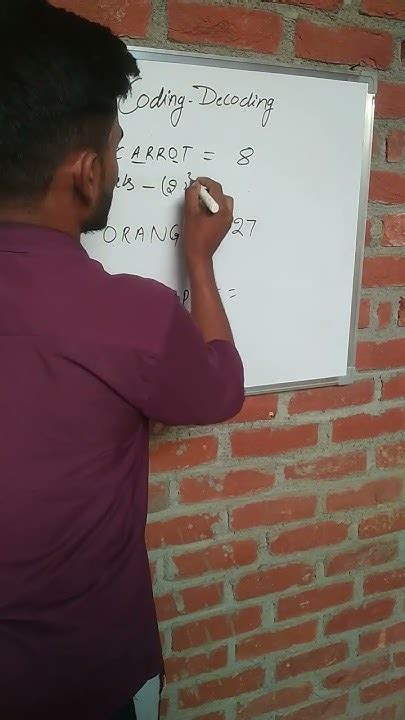 Coding-Decoding
CARROT = 8
- (2)³
ORANG 27
=